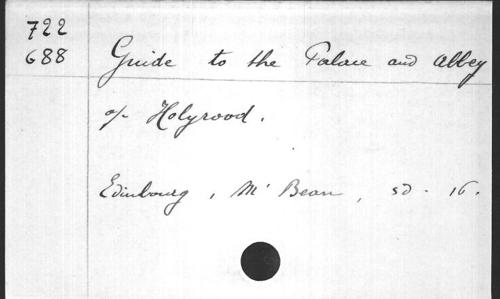 722
688
Guide to the Palace and Abbey
of Holyrood.
Edinbourg, Mc Bean, sd. 16.